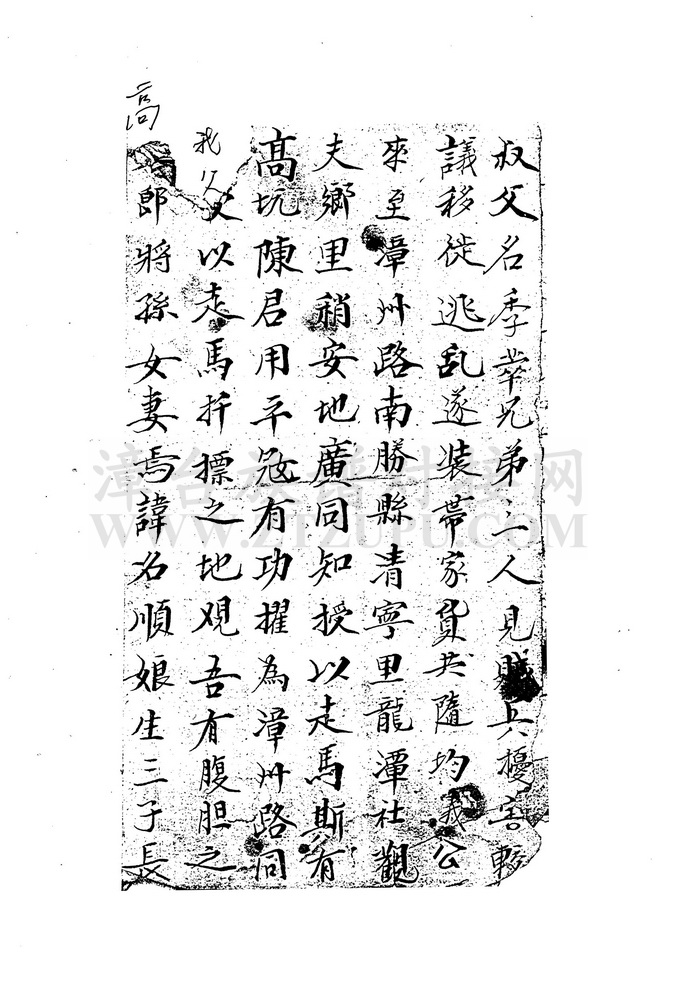 叔父名季華兄弟三人見賊兵擾害
議移徙逃乱遂装帯家貨共隨均義公
來至漳州路南勝縣清寧里龍潭社觀
夫鄉里稍安地廣同知授以走馬斯有
高坑陳君用平冦有功擢為漳州路同
我父
父以走馬折摽之地观吾有腹胆之
高
郎將孫女妻焉諱名順娘生三子長
漳台族譜對接网
WWW.ZTZUPU.COM